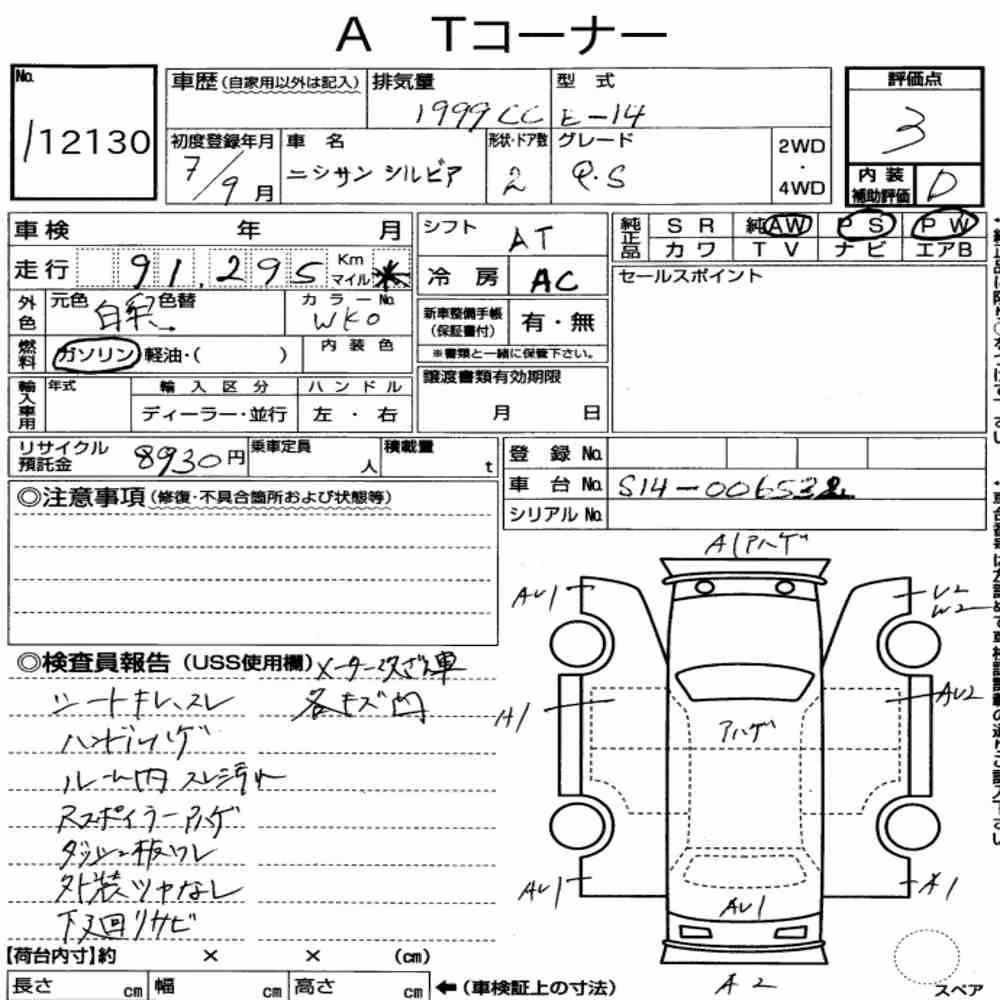 A Tコーナー
No.
112130
車歴(自家用以外は記入)
排気量
1999CC
型 式
E-14
初度登録年月
7/9月
車 名
ニシサン シルビア
形状・ドア数
2
グレード
Q・S
2WD
・
4WD
評価点
3
内装
補助評価
D
車検 年 月
走行 91,295 Km
マイル *
外色
元色 白 色替
カラーNo.
WK0
燃料
ガソリン 軽油・( )
内装色
輸入車用
年式
輸入区分
ディーラー・並行
ハンドル
左・右
シフト
AT
冷房
AC
新車整備手帳
(保証書付)
有・無
※書類と一緒に保管下さい。
譲渡書類有効期限
月 日
純正品
SR 純AW PS PW
カワ TV ナビ エアB
セールスポイント
リサイクル
預託金
8930円
乗車定員
人
積載量
t
登録No.
車台No. S14-006532
シリアルNo.
◎注意事項(修復・不具合箇所および状態等)
◎検査員報告(USS使用欄)メーター改ざん車
シートキレ、スレ
各キズ凹
ハンドルハゲ
ルーム内スレ汚レ
Rスポイラーアハゲ
ダッシュ板ワレ
外装ツヤなし
下廻リサビ
A1アハゲ
AU1
U2
W2
A1
AU2
アハゲ
AU1
A1
AU1
A2
スペア
【荷台内寸】約 × × (cm)
長さ cm 幅 cm 高さ cm
←(車検証上の寸法)